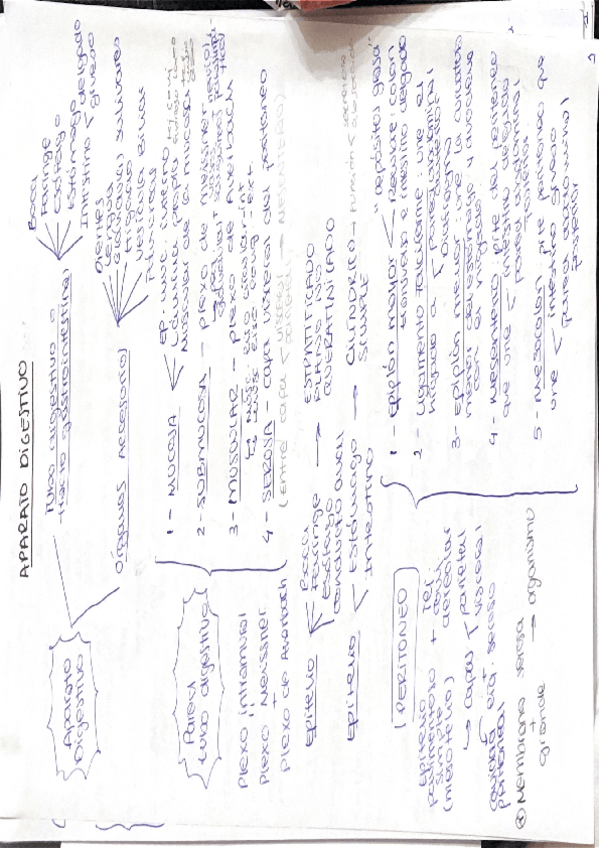 APARATO DIGESTIVO
Aparato
Digestivo
Tubo digestivo o
tracto gastrointestinal
Boca
Faringe
esófago
Estómago
Intestino < delgado
grueso
órganos accesorios
Dientes
Lengua
Glándulas salivares
Hígado
vesícula Biliar
Páncreas
Pared
tubo digestivo
1 - MUCOSA
Ep. muc. interno
Lámina propia
Muscular de la mucosa
2 - SUBMUCOSA - plexo de meissner
3 - MUSCULAR - plexo de Auerbach
↳ musc. liso circular - int
musc. liso long - ext.
4 - SEROSA - capa visceral del peritoneo
(entre capa < visceral
parietal → MESENTERIO)
Plexo intramural
Plexo Meissner
+
Plexo de Auerbach
Epitelio < Boca
Faringe
Esófago
conducto anal
→ ESTRATIFICADO
PLANO NO
QUERATINICADO
Epitelio < Estómago
Intestino
→ CILÍNDRICO
SIMPLE
PERITONEO
Epitelio
pavimentoso
simple
(mesotelio)
+ Tej.
conj.
areolar
↳ capas < parietal
visceral
cavidad
peritoneal
líq. seroso
⊛ Membrana serosa
+
grande → organismo
1 - Epiplón mayor < Recubre colon
transverso e intestino delgado
"depósitos grasa"
2 - Ligamento falciforme: une el
hígado a < pared abdominal
anterior
Diafragma
3 - Epiplón menor: une la curvatura
menor del estómago y duodeno
con el hígado.
4 - Mesenterio: plte del peritoneo
que une < intestino delgado
pared abdominal
posterior
5 - Mesocolon: plte peritoneo que
une < intestino grueso
pared abdominal
posterior